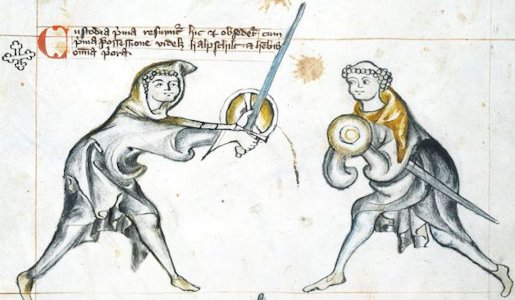 Custodia pͥma resumit᷑ hic & obsedet᷑ cum
pͥma possessione videlꝫ halpschilt
omnia pͥora